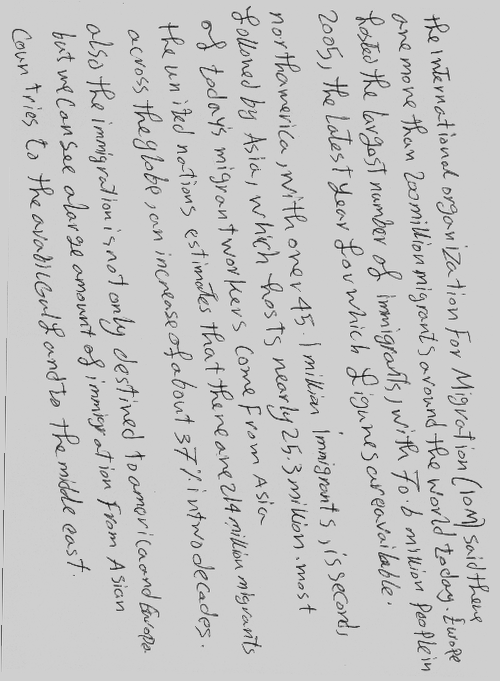 the International organization For Migration (IOM) said there
are more than 200 million migrants around the world today. Europe
hosted the largest number of immigrants, with 70.6 million People in
2005, the latest year for which figures are available.
northamerica, with over 45.1 million immigrants, is second,
followed by Asia, which hosts nearly 25.3 million. most
of today's migrant workers come From Asia
the united nations estimates that there are 214 million migrants
across the globe, an increase of about 37% in two decades.
also the immigration is not only destined to america and Europa
but we can see a large amount of immigration From Asian
Countries to the arabic Gulf and to the middle east.